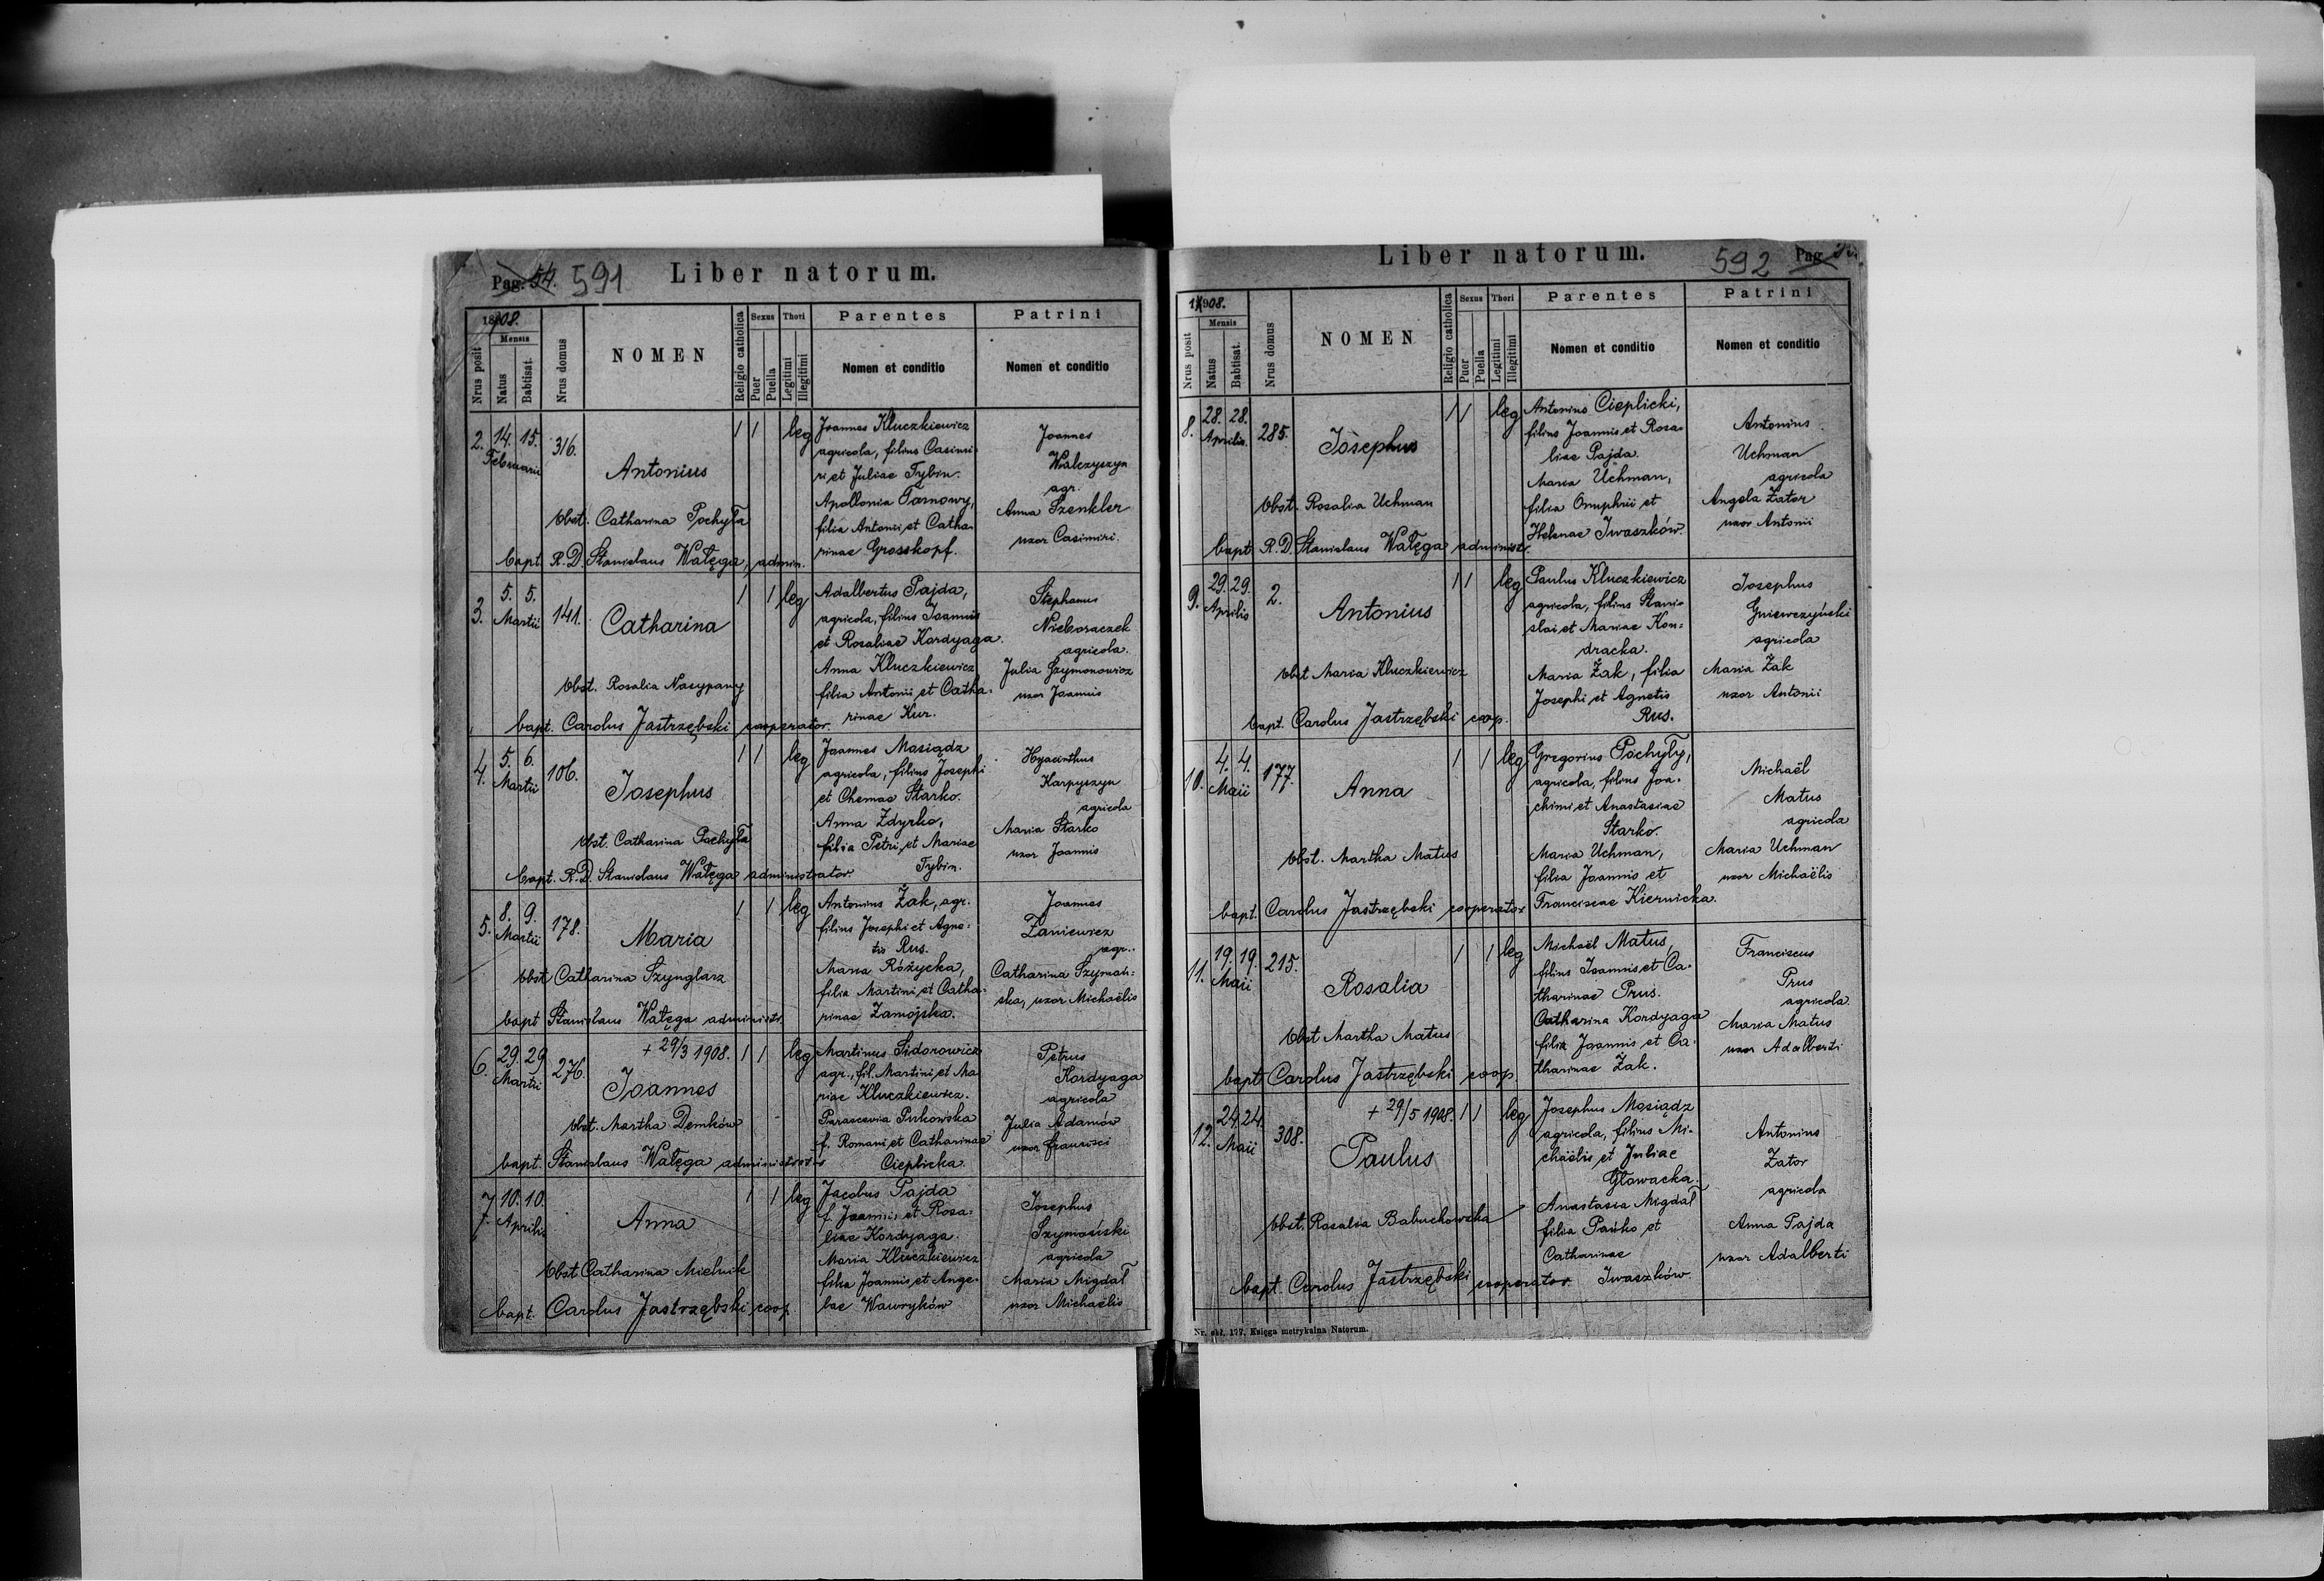 Pag. 54. 591 Liber natorum.
1908.
Mensis
Nrus posit
Natus
Babtisat.
Nrus domus
NOMEN
Religio catholica
Sexus
Puer
Puella
Thori
Legitimi
Illegitimi
Parentes
Nomen et conditio
Patrini
Nomen et conditio
2. 14. 15. Februarii 316.
Antonius
1 1 leg
Obst. Catharina Pochyła
bapt. R. D. Stanislaus Wałęga, admin.
Joannes Kluczkiewicz
agricola, filius Casimi-
ri et Juliae Tybin.
Apollonia Tarnowy,
filia Antonii et Catha-
rinae Grosskopf.
Joannes
Walczyszyn
agr.
Anna Szenkler
uxor Casimiri.
3. 5. 5. Martii 141.
Catharina
1 1 leg
Obst. Rosalia Nasypany
bapt. Carolus Jastrzębski cooperator.
Adalbertus Pajda,
agricola, filius Joannis
et Rosaliae Kordyaga.
Anna Kluczkiewicz
filia Antonii et Catha-
rinae Kur.
Stephanus
Nieboraczek
agricola.
Julia Szymonowicz
uxor Joannis
4. 5. 6. Martii 106.
Josephus
1 1 leg
Obst. Catharina Pochyła
bapt. R. D. Stanislaus Wałęga administrator
Joannes Masiądz
agricola, filius Josephi
et Chemae Starko.
Anna Zdyrko,
filia Petri et Mariae
Tybin.
Hyacinthus
Karpyszyn
agricola
Maria Starko
uxor Joannis
5. 8. 9. Martii 178.
Maria
1 1 leg
Obst Catharina Szynglarz
bapt Stanislaus Wałęga administr.
Antonius Żak, agr.
filius Josephi et Agne-
tis Rus.
Maria Różycka,
filia Martini et Catha-
rinae Zamojska.
Joannes
Zaniewicz
agr.
Catharina Szymań-
ska, uxor Michaëlis
6. 29. 29 Martii 276.
+ 29/3 1908. 1 1 leg
Joannes
Obst. Martha Demków
bapt. Stanislaus Wałęga administrator
Martinus Sidorowicz
agr., fil. Martini et Ma
riae Kluczkiewicz.
Parascevia Pukowska
f. Romani et Catharinae
Cieplicka.
Petrus
Kordyaga
agricola
Julia Adamów
uxor Francisci
7. 10. 10. Aprilis
Anna
1 1 leg
Obst Catharina Mielnik
bapt. Carolus Jastrzębski, coop.
Jacobus Pajda
f. Joannis et Rosa-
liae Kordyaga.
Maria Kluczkiewicz
filia Joannis et Ange-
lae Wawryków
Josephus
Szymański
agricola
Maria Migdał
uxor Michaëlis
Liber natorum. 592 Pag.
1908.
Mensis
Nrus posit
Natus
Babtisat.
Nrus domus
NOMEN
Religio catholica
Sexus
Puer
Puella
Thori
Legitimi
Illegitimi
Parentes
Nomen et conditio
Patrini
Nomen et conditio
8. 28. 28. Aprilis 285.
Josephus
1 1 leg
Obst. Rosalia Uchman
bapt R. D. Stanislaus Wałęga administr.
Antonius Cieplicki,
filius Joannis et Rosa-
liae Pajda.
Maria Uchman,
filia Onuphrii et
Helenae Iwaszków.
Antonius
Uchman
agricola
Angela Zator
uxor Antonii
9. 29. 29. Aprilis 2.
Antonius
1 1 leg
Obst Maria Kluczkiewicz
bapt. Carolus Jastrzębski coop.
Paulus Kluczkiewicz
agricola, filius Stanis-
slai et Mariae Kon-
dracka.
Maria Żak, filia
Josephi et Agnetis
Rus.
Josephus
Gniewczyński
agricola
Maria Żak
uxor Antonii
10. 4. 4. Maii 177.
Anna
1 1 leg
Obst. Martha Matus
bapt. Carolus Jastrzębski cooperator
Gregorius Pochyły,
agricola, filius Joa-
chimi et Anastasiae
Starko.
Maria Uchman,
filia Joannis et
Franciscae Kiernicka.
Michaël
Matus
agricola
Maria Uchman
uxor Michaëlis
11. 19. 19. Maii 215.
Rosalia
1 1 leg
Obst Martha Matus
bapt Carolus Jastrzębski coop.
Michaël Matus,
filius Joannis et Ca-
tharinae Prus.
Catharina Kordyaga
filia Joannis et Ca-
tharinae Żak.
Franciscus
Prus
agricola
Maria Matus
uxor Adalberti
12. 24. 24. Maii 308.
+ 29/5 1908. 1 1 leg
Paulus
Obst. Rosalia Babuchowska
bapt. Carolus Jastrzębski cooperator
Josephus Masiądz
agricola, filius Mi-
chaëlis et Juliae
Głowacka.
Anastasia Migdał
filia Pańko et
Catharinae
Iwaszków.
Antonius
Zator
agricola
Anna Pajda
uxor Adalberti
Nr. skł. 177. Księga metrykalna Natorum.